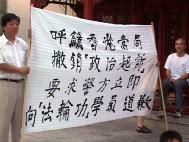 呼籲香港當局
撤銷"政治起訴"
要求警方立即
向「法輪功」學員道歉